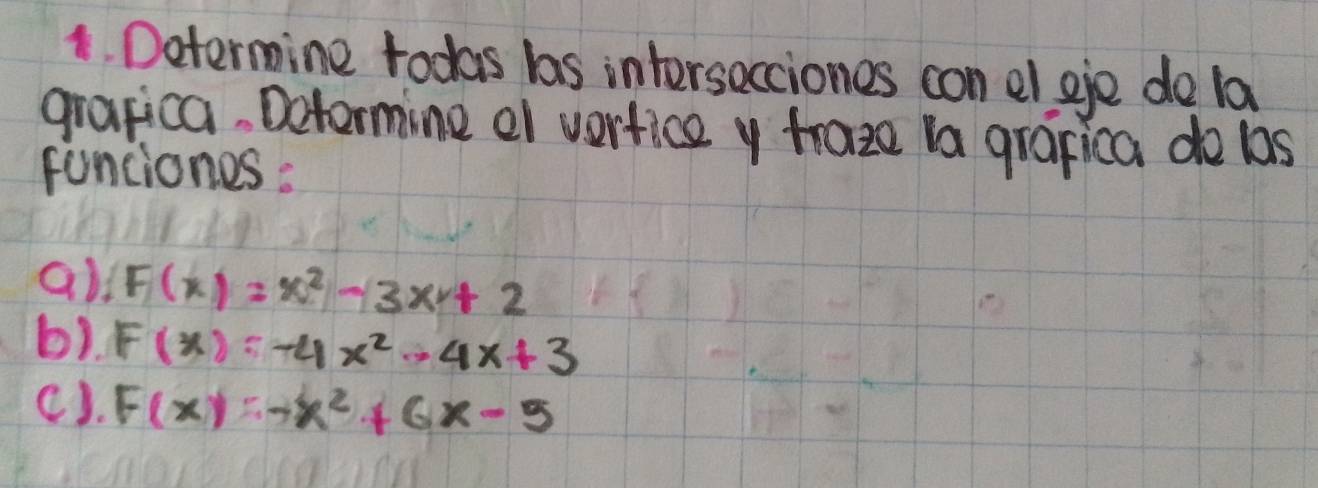 1. Determine todas las intersecciones con el eje de la
grafica. Determine el vertice y traze la gráfica de las
funciones:
a). F(x) = x² - 3x + 2
b). F(x) = -4x² - 4x + 3
c). F(x) = -x² + 6x - 5